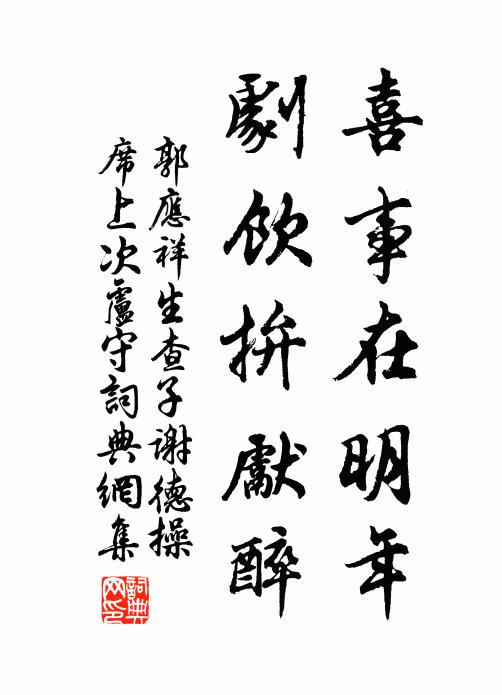 喜事在明年
劇飲拚獻醉
郭應祥生查子謝德操
席上次盧守詞典網集
詞典
网印